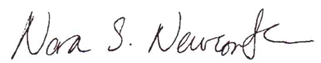 Nora S. Newcombe